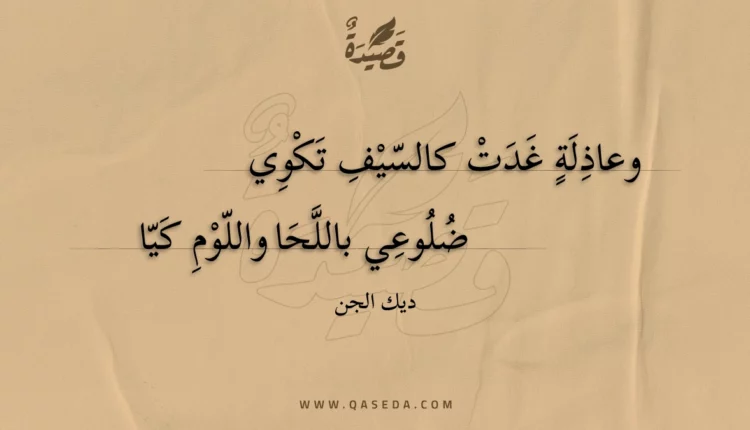 قَصِيدَةٌ
وعاذِلَةٍ غَدَتْ كالسّيْفِ تَكْوِي
ضُلُوعِي باللَّحَا واللّوْمِ كَيّا
ديك الجن
WWW.QASEDA.COM